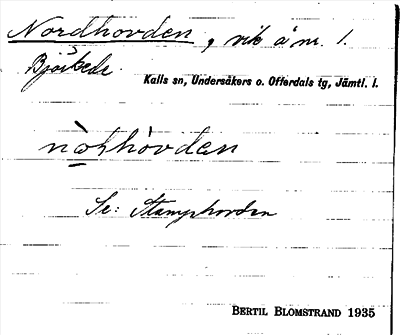 Nordhovden, vik å nr. 1.
Björkede.
Kalls sn, Undersåkers o. Offerdals tg, Jämtl. l.
Se: Stamphovden
BERTIL BLOMSTRAND 1935